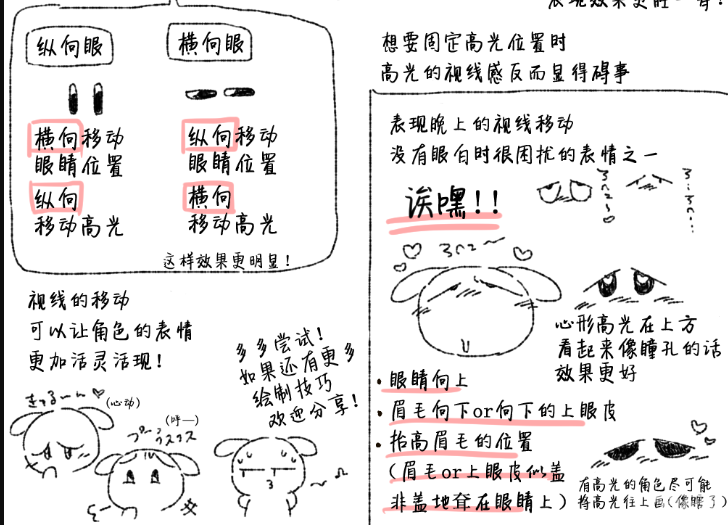 纵向眼
横向眼
横向移动
眼睛位置
纵向
移动高光
纵向移动
眼睛位置
横向
移动高光
这样效果更明显!
视线的移动
可以让角色的表情
更加活灵活现!
多多尝试!
如果还有更多
绘制技巧
欢迎分享!
(心动)
(呼—)
想要固定高光位置时
高光的视线感反而显得碍事
表现晚上的视线移动
没有眼白时很困扰的表情之一
诶嘿!!
心形高光在上方
看起来像瞳孔的话
效果更好
·眼睛向上
·眉毛向下or向下的上眼皮
·抬高眉毛的位置
(眉毛or上眼皮似盖
非盖地耷在眼睛上)
有高光的角色尽可能
将高光往上画(像瞎了)